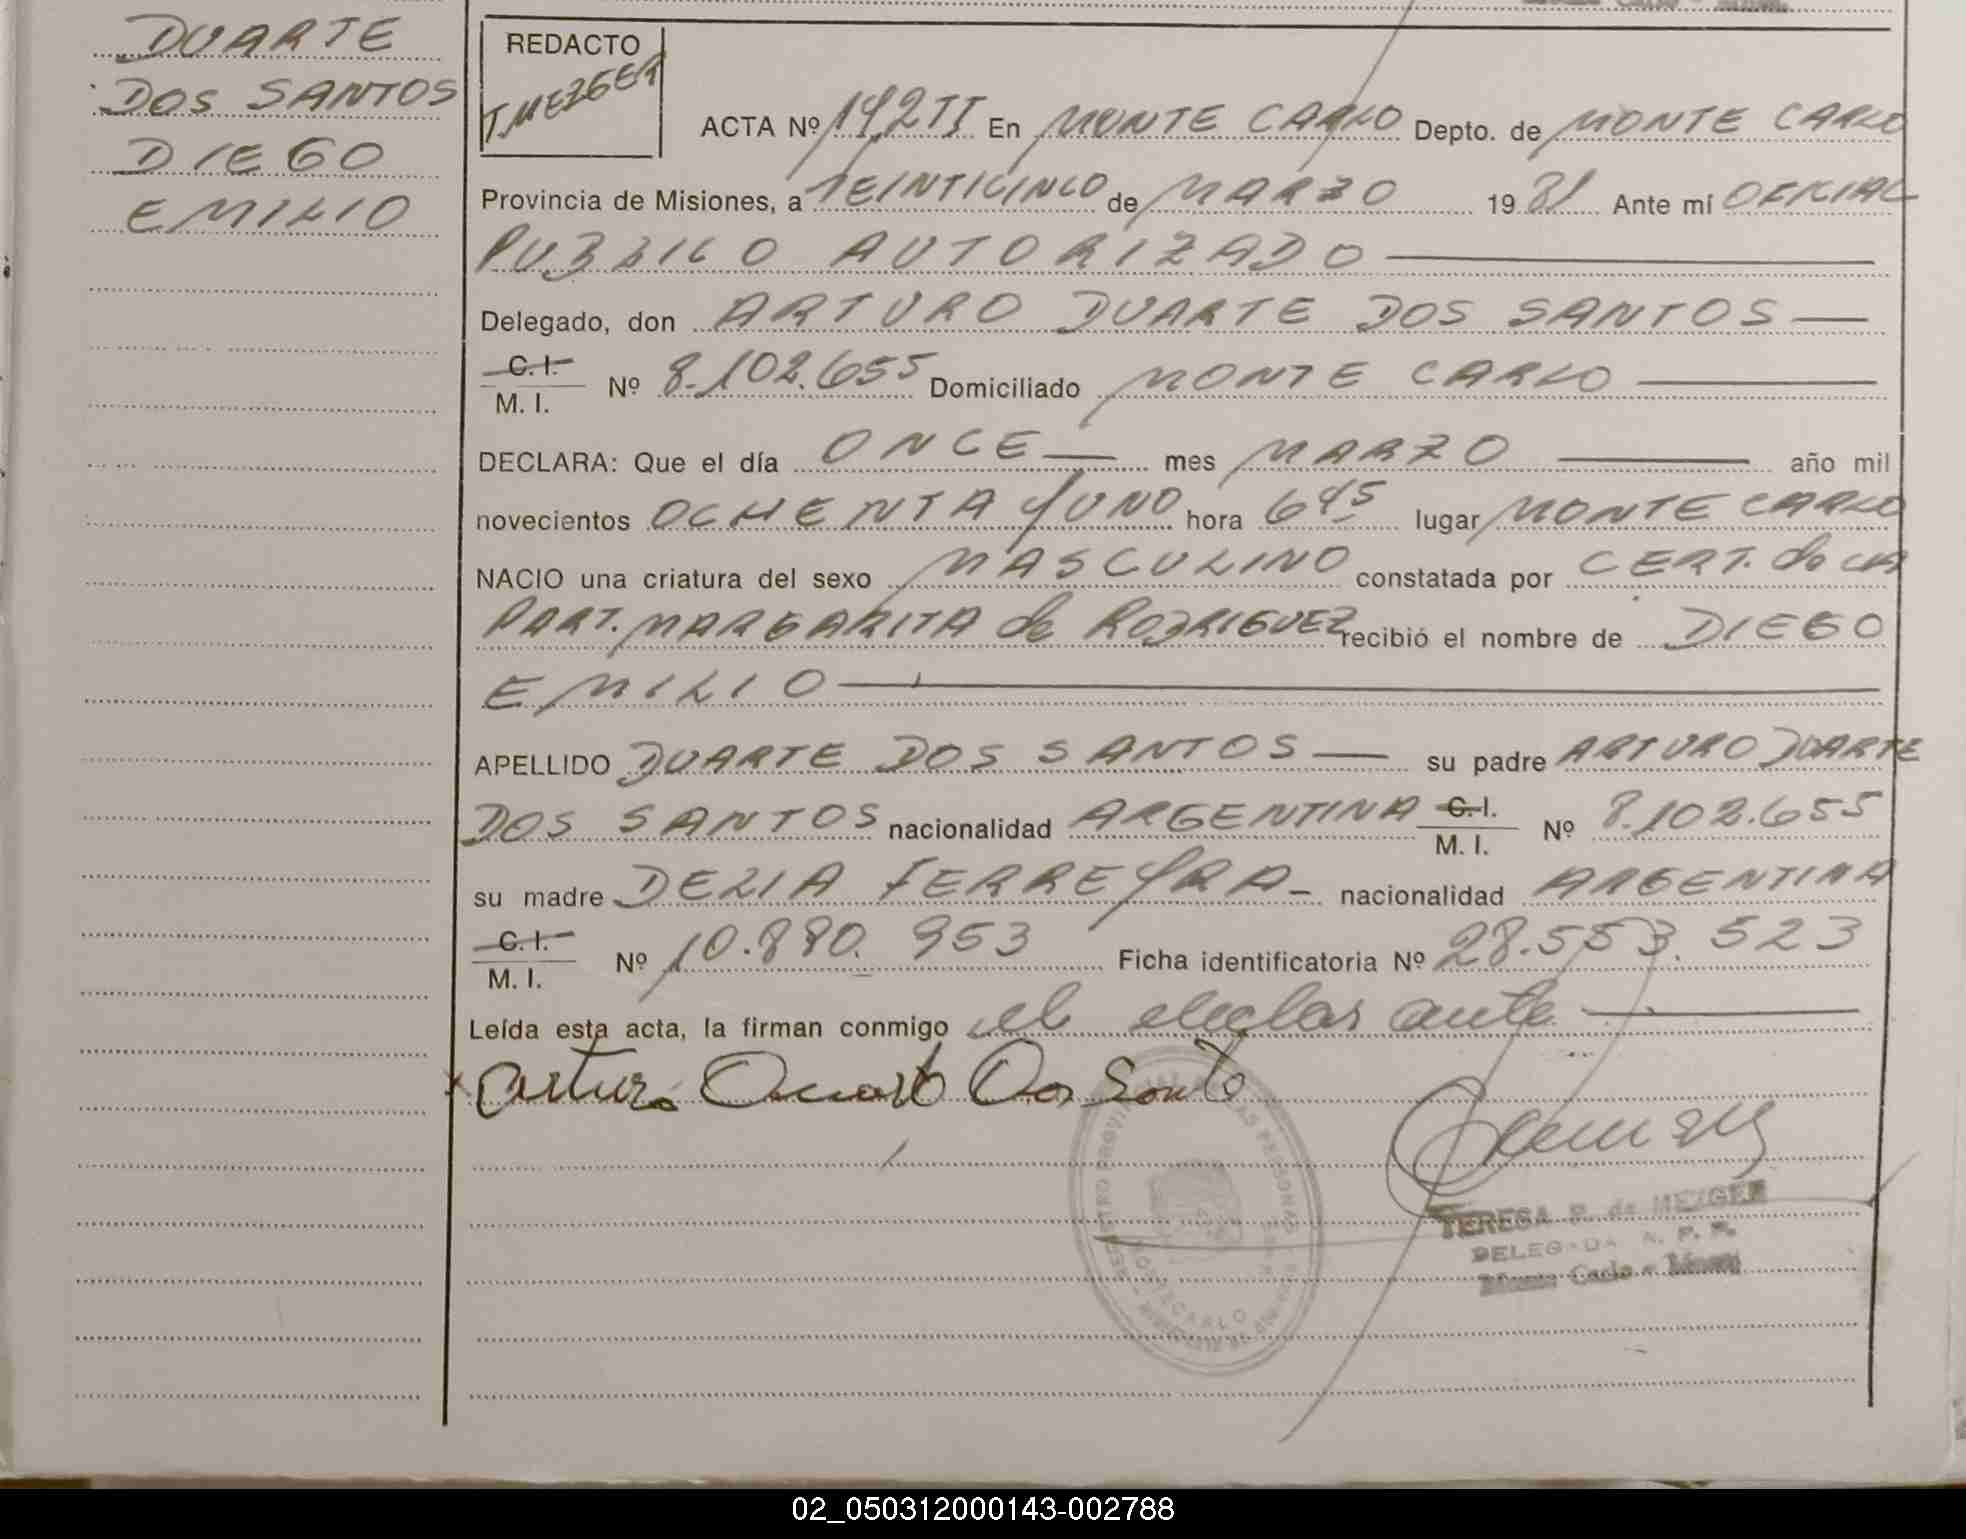 DUARTE
DOS SANTOS
DIEGO
EMILIO
REDACTO
T. MEZGER
ACTA Nº 142 II En MONTE CARLO Depto. de MONTE CARLO
Provincia de Misiones, a VEINTICINCO de MARZO 1981 Ante mí OFICIAL
PUBLICO AUTORIZADO
Delegado, don ARTURO DUARTE DOS SANTOS
C. I.
M. I. Nº 8.102.655 Domiciliado MONTE CARLO
DECLARA: Que el día ONCE mes MARZO año mil
novecientos OCHENTA Y UNO hora 6 45 lugar MONTE CARLO
NACIO una criatura del sexo MASCULINO constatada por CERT. de LA
PART. MARGARITA de RODRIGUEZ recibió el nombre de DIEGO
EMILIO
APELLIDO DUARTE DOS SANTOS su padre ARTURO DUARTE
DOS SANTOS nacionalidad ARGENTINA C. I. M. I. Nº 8.102.655
su madre DELIA FERREYRA nacionalidad ARGENTINA
C. I.
M. I. Nº 10.880.953 Ficha identificatoria Nº 28.553.523
Leída esta acta, la firman conmigo el declarante
Arturo Duarte Dos Santo
TERESA P. de MEZGER
DELEGADA R. P. P.
Monte Carlo - Mnes.
02_050312000143-002788